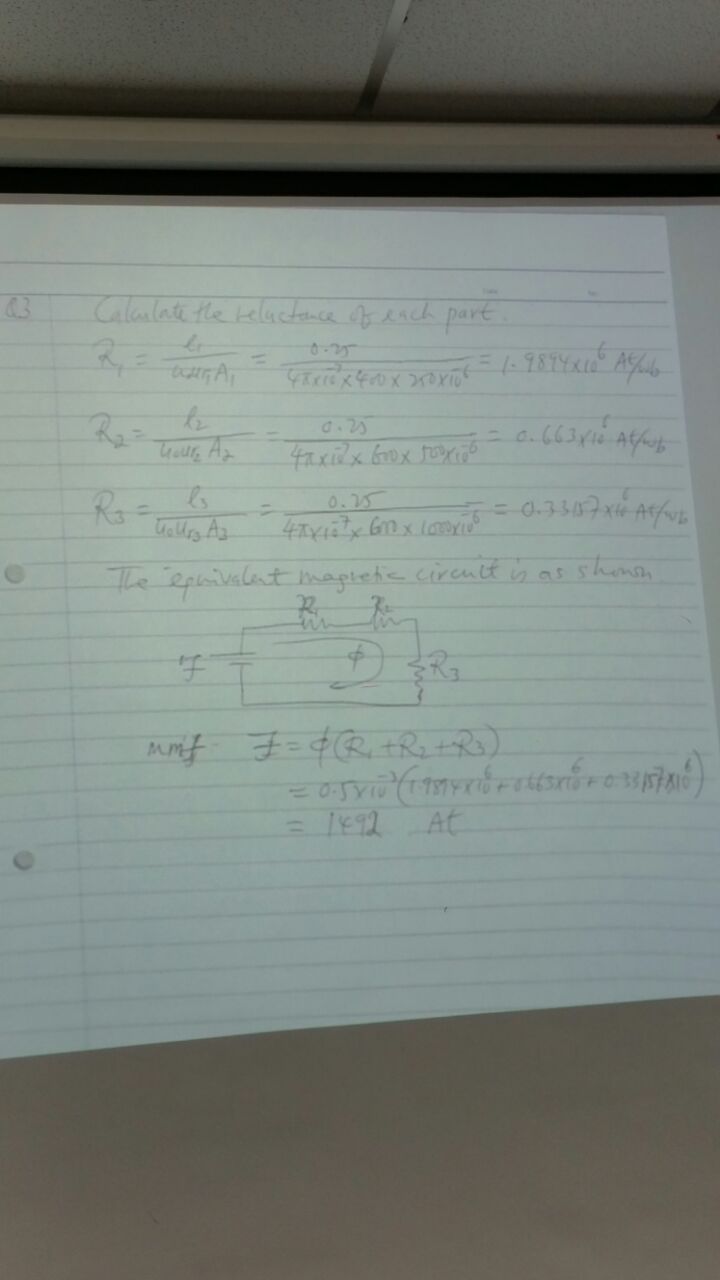 Q3 Calculate the reluctance of each part.
R₁ = l₁ / μ₀μr₁A₁ = 0.25 / 4π×10⁻⁷×400×250×10⁻⁶ = 1.9894×10⁶ At/wb
R₂ = l₂ / μ₀μr₂ A₂ = 0.25 / 4π×10⁻⁷×600×500×10⁻⁶ = 0.663×10⁶ At/wb
R₃ = l₃ / μ₀μr₃ A₃ = 0.25 / 4π×10⁻⁷×600×1000×10⁻⁶ = 0.33157×10⁶ At/wb
The equivalent magnetic circuit is as shown
R₁ R₂
F φ R₃
mmf F = φ(R₁+R₂+R₃)
= 0.5×10⁻³(1.9894×10⁶+0.663×10⁶+0.33157×10⁶)
= 1492 At